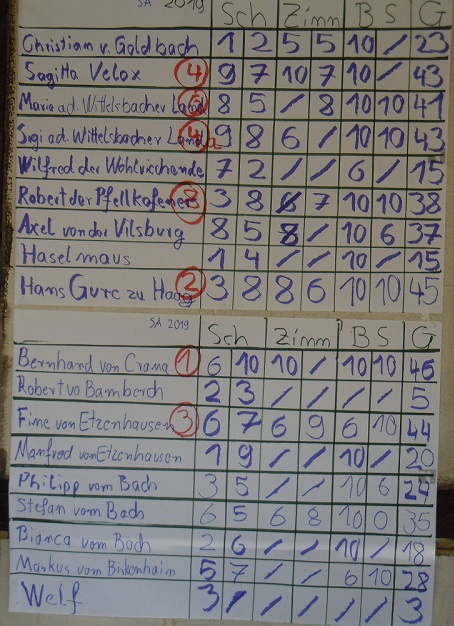 SA 2019 Sch Zimm B S G
Christian v. Goldbach 1 2 5 5 10 / 23
Sagitta Velox 4 9 7 10 7 10 / 43
Maria a.d. Wittelsbacher Land 8 5 / 8 10 10 41
Sigi a.d. Wittelsbacher Land 4 9 8 6 / 10 10 43
Wilfred der Wohlriechende 7 2 / / 6 / 15
Robert der Pfeilkofener 8 3 8 8 7 10 10 38
Axel von der Vilsburg 8 5 8 / 10 6 37
Haselmaus 1 4 / / 10 / 15
Hans Gurc zu Haag 2 3 8 8 6 10 10 45
SA 2019 Sch Zimm B S G
Bernhand von Crana 1 6 10 10 / 10 10 46
Robert vo Bamberch 2 3 / / / / 5
Fime von Etzenhausen 3 6 7 6 9 6 10 44
Manfred von Etzenhausen 1 9 / / 10 / 20
Philipp vom Bach 3 5 / / 10 6 24
Stefan vom Bach 6 5 6 8 10 0 35
Bianca vom Bach 2 6 / / 10 / 18
Markus vom Birkenhaim 5 7 / / 6 10 28
Welf 3 / / / / / 3